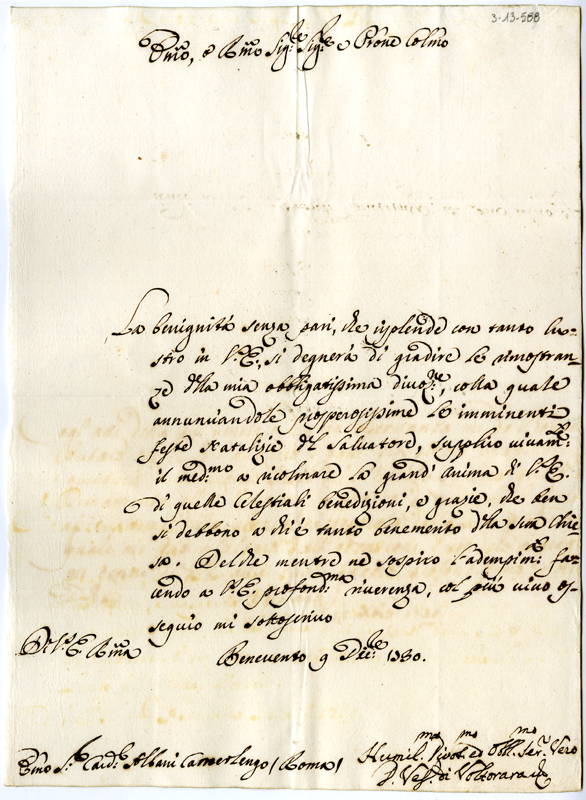 3-13-588
Emo, e Rmo Sig.re Sig.re e Prone Colmo
La benignità senza pari, che risplende con tanto lu-
stro in V.E., si degnerà di gradire le rimostran-
ze della mia obbligatissima divoz.ne, colla quale
annunziandole prosperosissime le imminenti
feste Natalizie del Salvatore, supplico vivam.te
il med.mo a ricolmare la grand'anima di V.E.
di quelle Celestiali benedizioni, e grazie, che ben
si debbono a chi è tanto benemerito della sua Chie-
sa. Del che mentre ne sospiro l'adempim.to fa-
cendo a V.E. profond.ma riverenza, col più vivo os-
sequio mi sottoscrivo
Di V.E. Rma
Benevento 9 Dic.re 1730.
Emo S.r Card.le Albani Camerlengo (Roma)
Humil.mo Divot.mo ed Obbl.mo Ser.r Vero
Vesc.o di Volturara